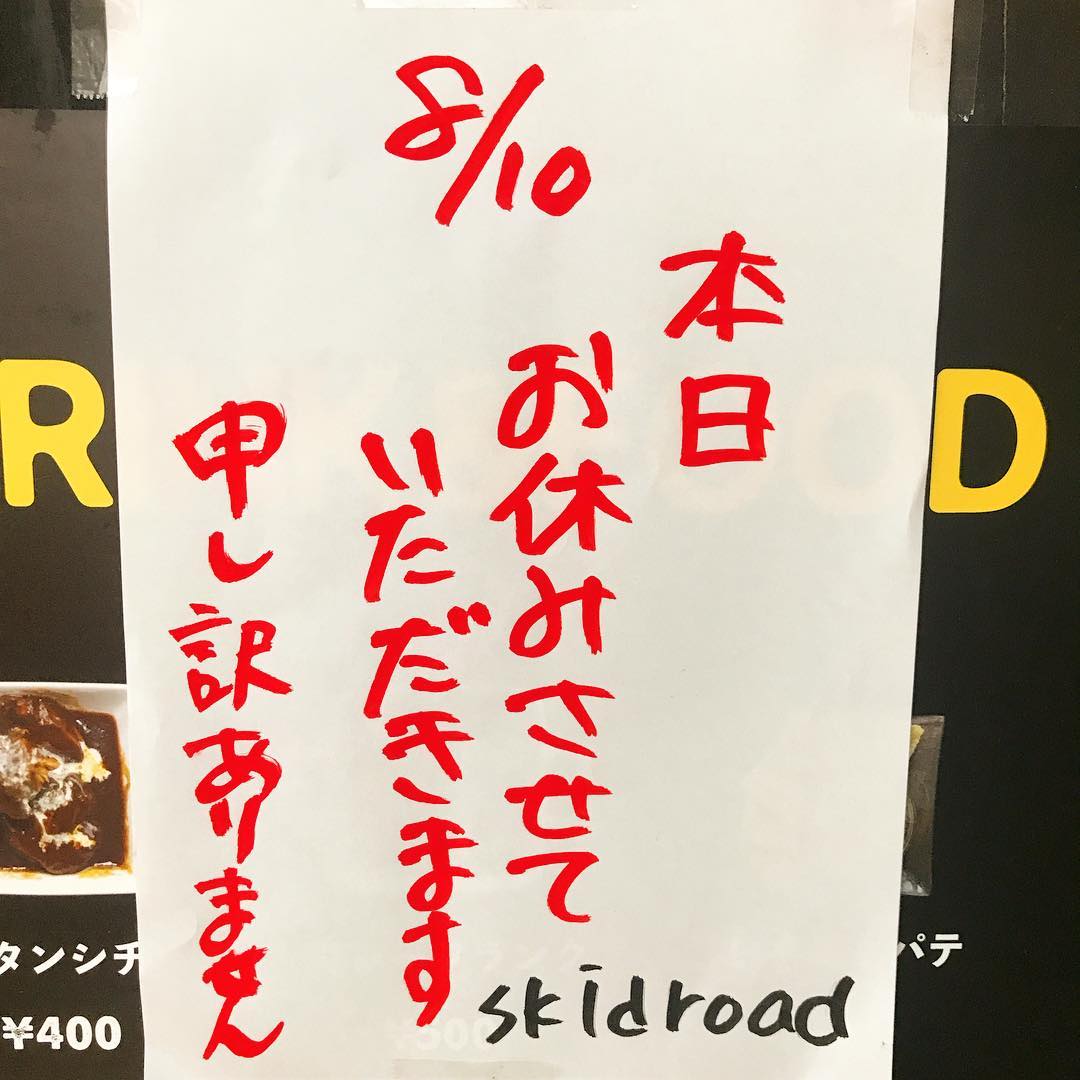 8/10
本日
お休みさせて
いただきます
申し訳ありません
skidroad
R
OD
タンシチ
¥400
パテ